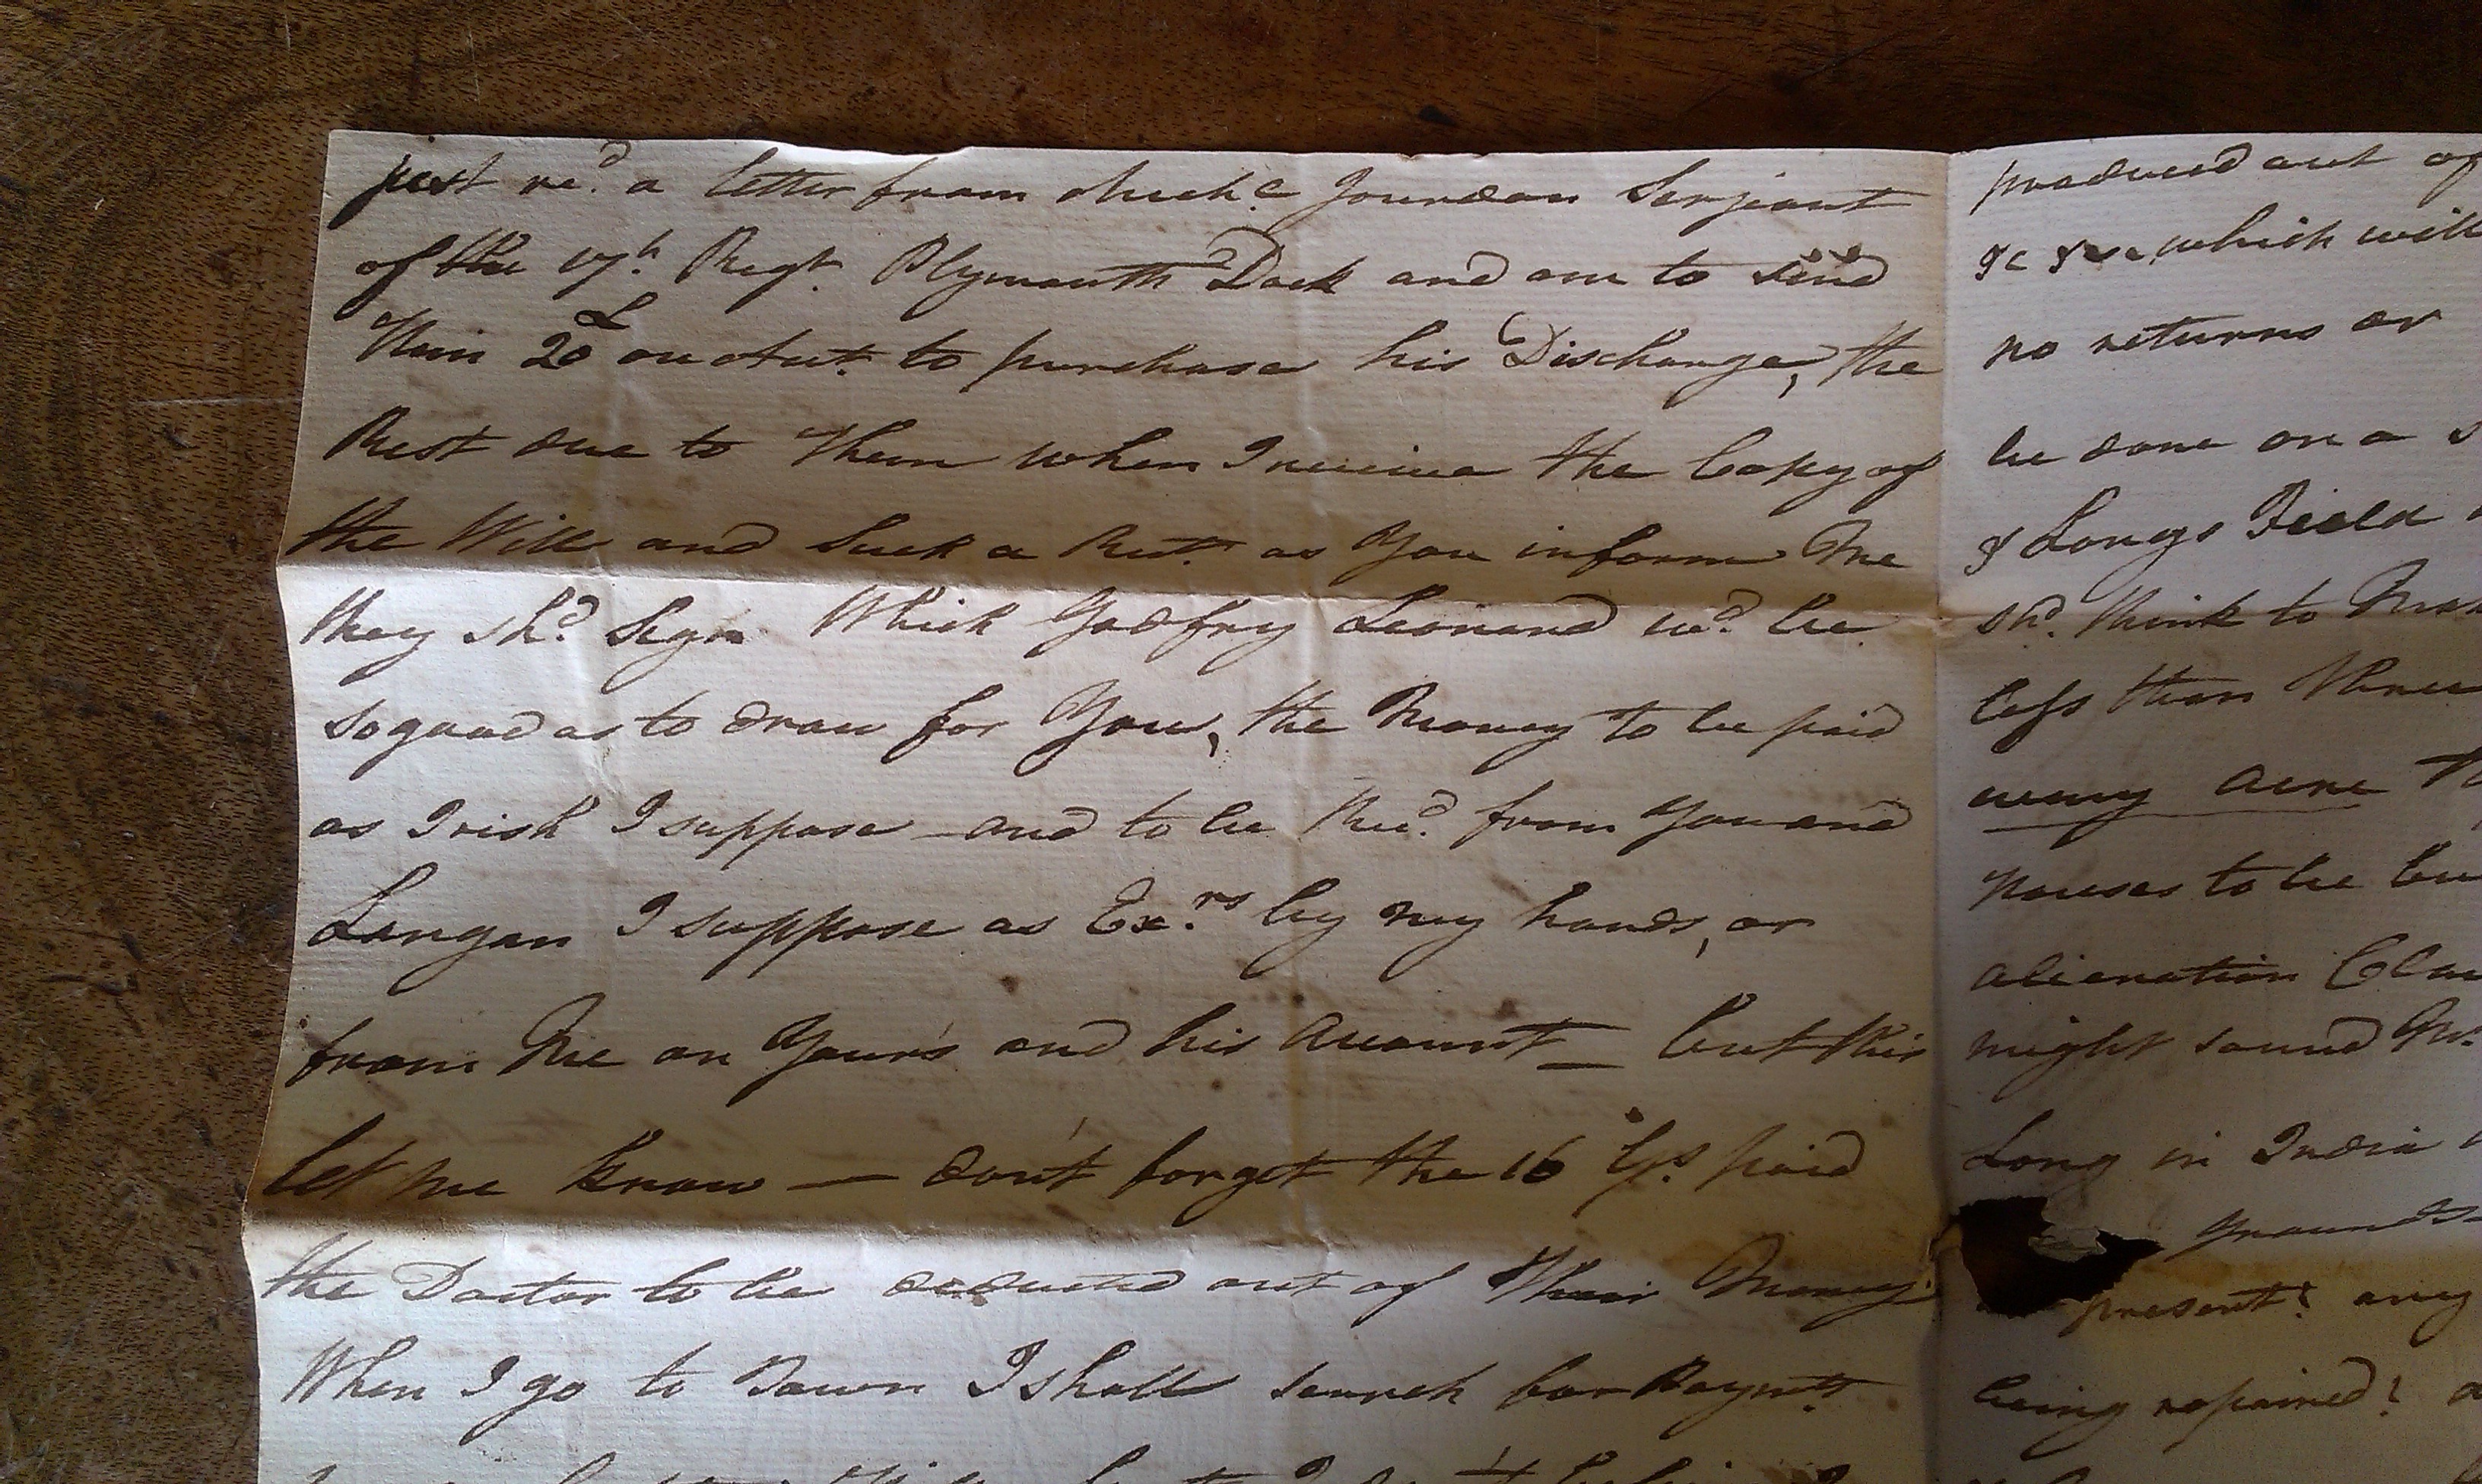 just recd. a letter from Michl. Jourdan Serjeant
of the 17h. Regt. Plymouth Dock and am to send
Him 20£ on Acct. to purchase his Discharge, the
Rest due to Them when I receive the Copy of
the Will and Such a Rect. as You inform Me
they shd. Sign Which Godfry Leonard wd. be
so good as to draw for You, the Money to be paid
as Irish I suppose and to be Recd. from You and
Langan I suppose as Exrs. by my hands, or
from Me on Your's and his Account — but this
let me know — don't forget the 16 Gs. paid
the Doctor to be deducted out of Their Money.
When I go to Town I shall search for Paymts.
produced out of
&c &c which will
no returns or
be done on a
& Longs Field
shd. think to
less than Three
every acre
houses to be
alienation
might sound Mr.
Long in India
grounds
present? any
being repaired?